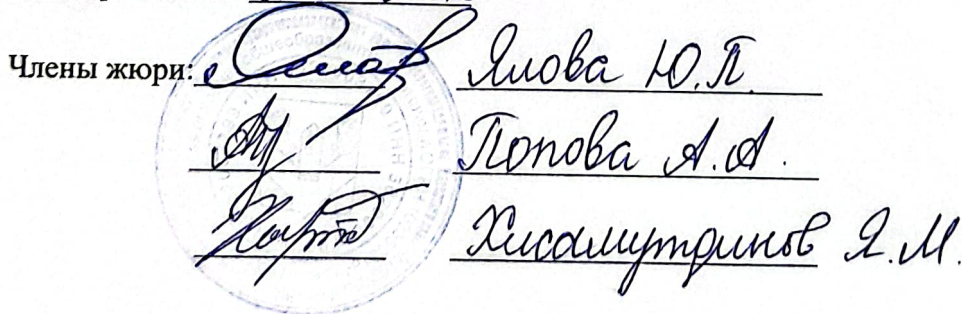 Члены жюри: Ялова Ю.П.
Попова А.А.
Хисамутдинов Я.М.